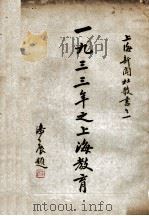 上海新闻社丛书之一
一九三三年之上海教育
潘公展题